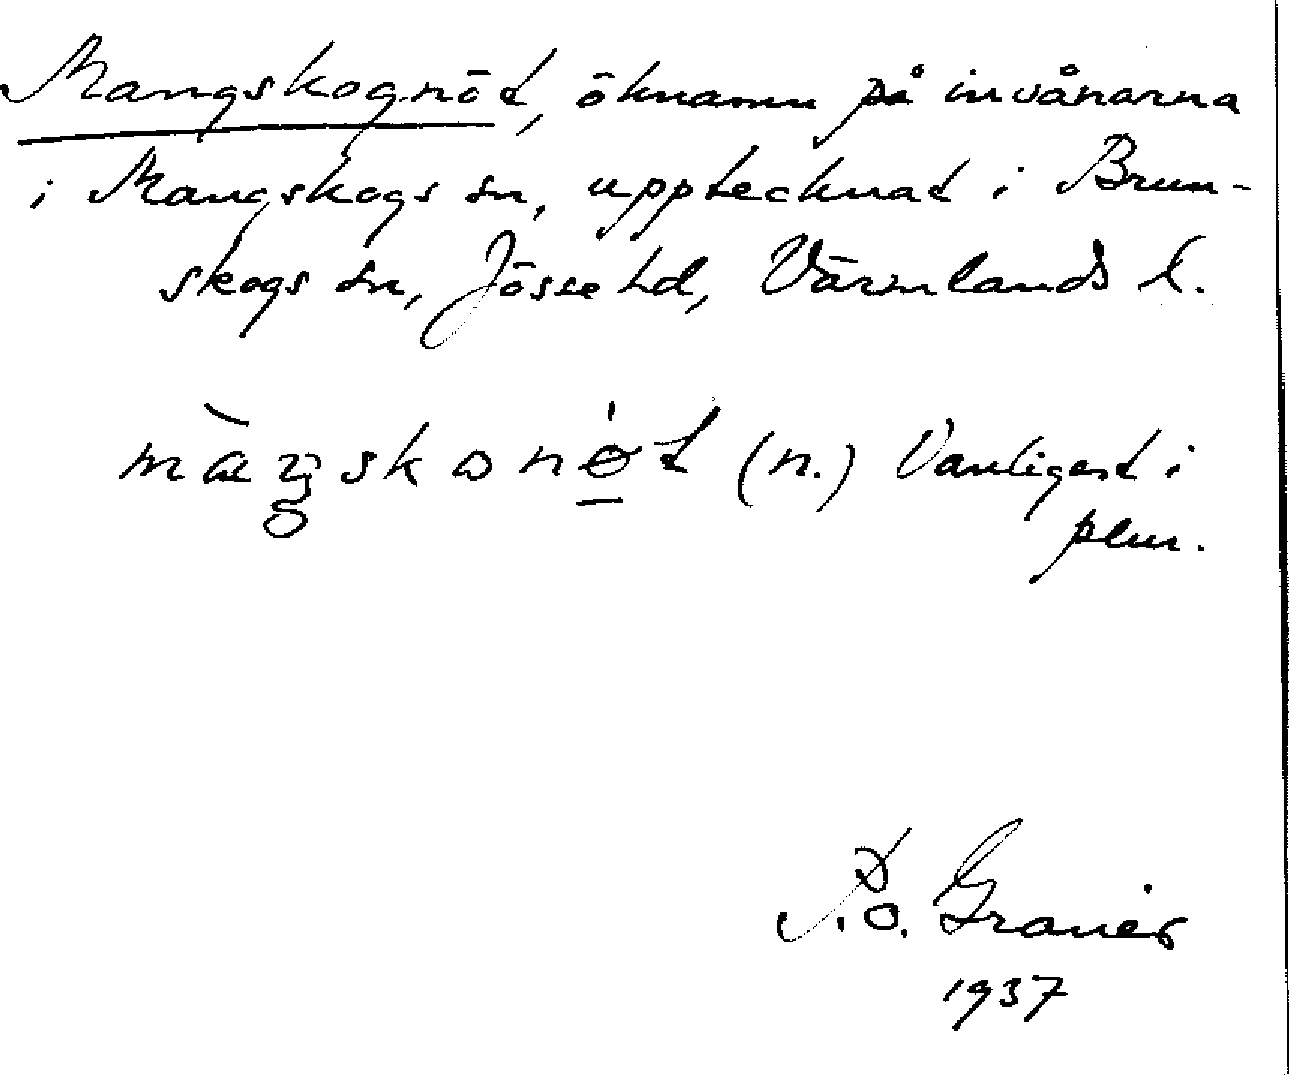 Mangskognöt, öknamn på invånarna
i Mangskogs sn, upptecknat i Brun-
skogs sn, Jösse hd, Värmlands l.
(n.) Vanligast i
plur.
P.O. Granér
1937